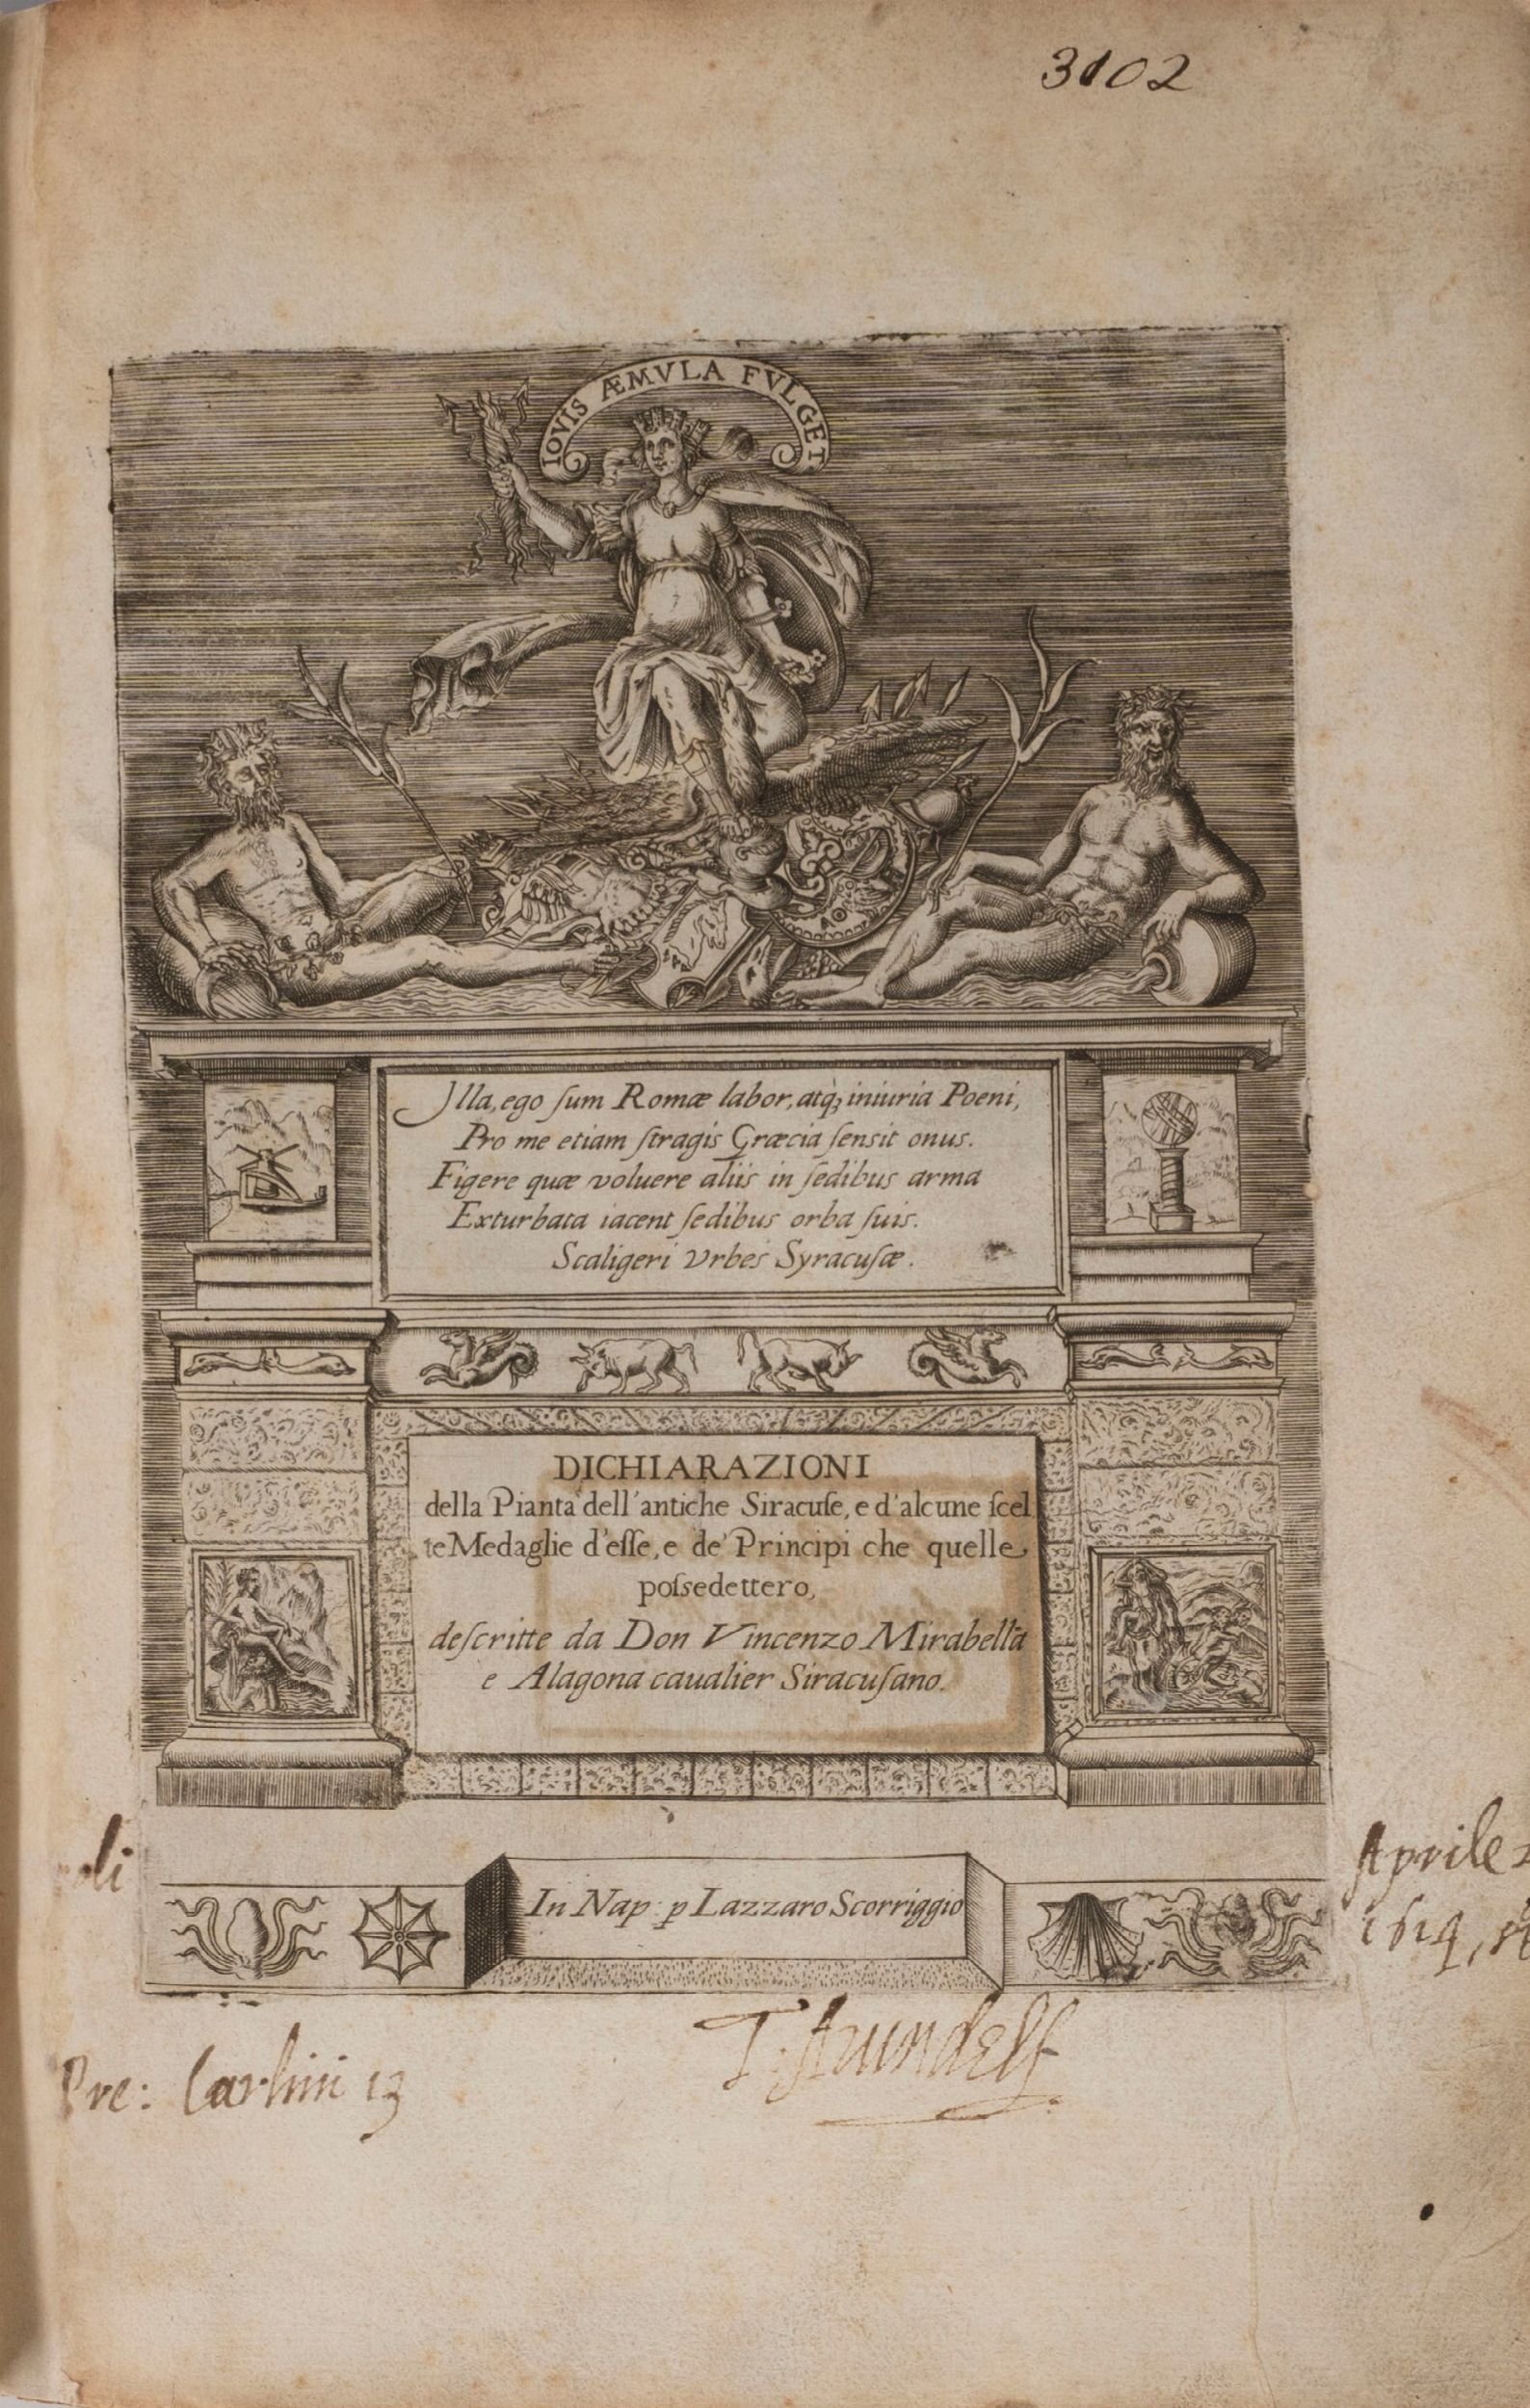 3102
IOVIS ÆMVLA FVLGET
Illa, ego ſum Romæ labor, atq́; iniuria Poeni,
Pro me etiam ſtragis Græcia ſenſit onus.
Figere quæ voluere aliis in ſedibus arma
Exturbata iacent ſedibus orba ſuis.
Scaligeri Vrbes Syracuſæ.
DICHIARAZIONI
della Pianta dell'antiche Siracuſe, e d'alcune ſcel
te Medaglie d'eſſe, e de' Principi che quelle
poſsedettero,
deſcritte da Don Vincenzo Mirabella
e Alagona caualier Siracuſano.
oli
Aprile
In Nap: ꝑ Lazzaro Scorriggio
1614,
T: Arundell
Pre: Carlini 13